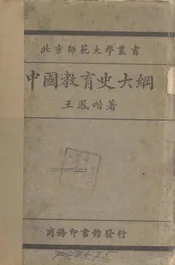 北京師範大學叢書
中國教育史大綱
王鳳喈著
商務印書館發行